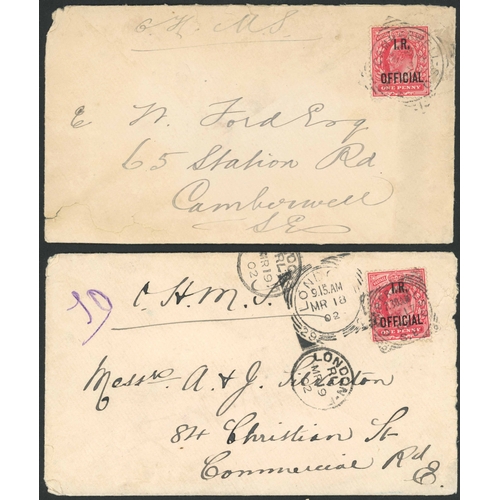 O. H. M. S.
I.R.
OFFICIAL
ONE PENNY
E W. Ford Esq
65 Station Rd
Camberwell
S.E
O. H. M. S.
LONDON
9.15.AM
MR 18
02
28
MR 19
02
I.R.
OFFICIAL
ONE PENNY
LONDON
MR 19
02
Messrs A. & J.
84 Christian St
Commercial Rd
E.